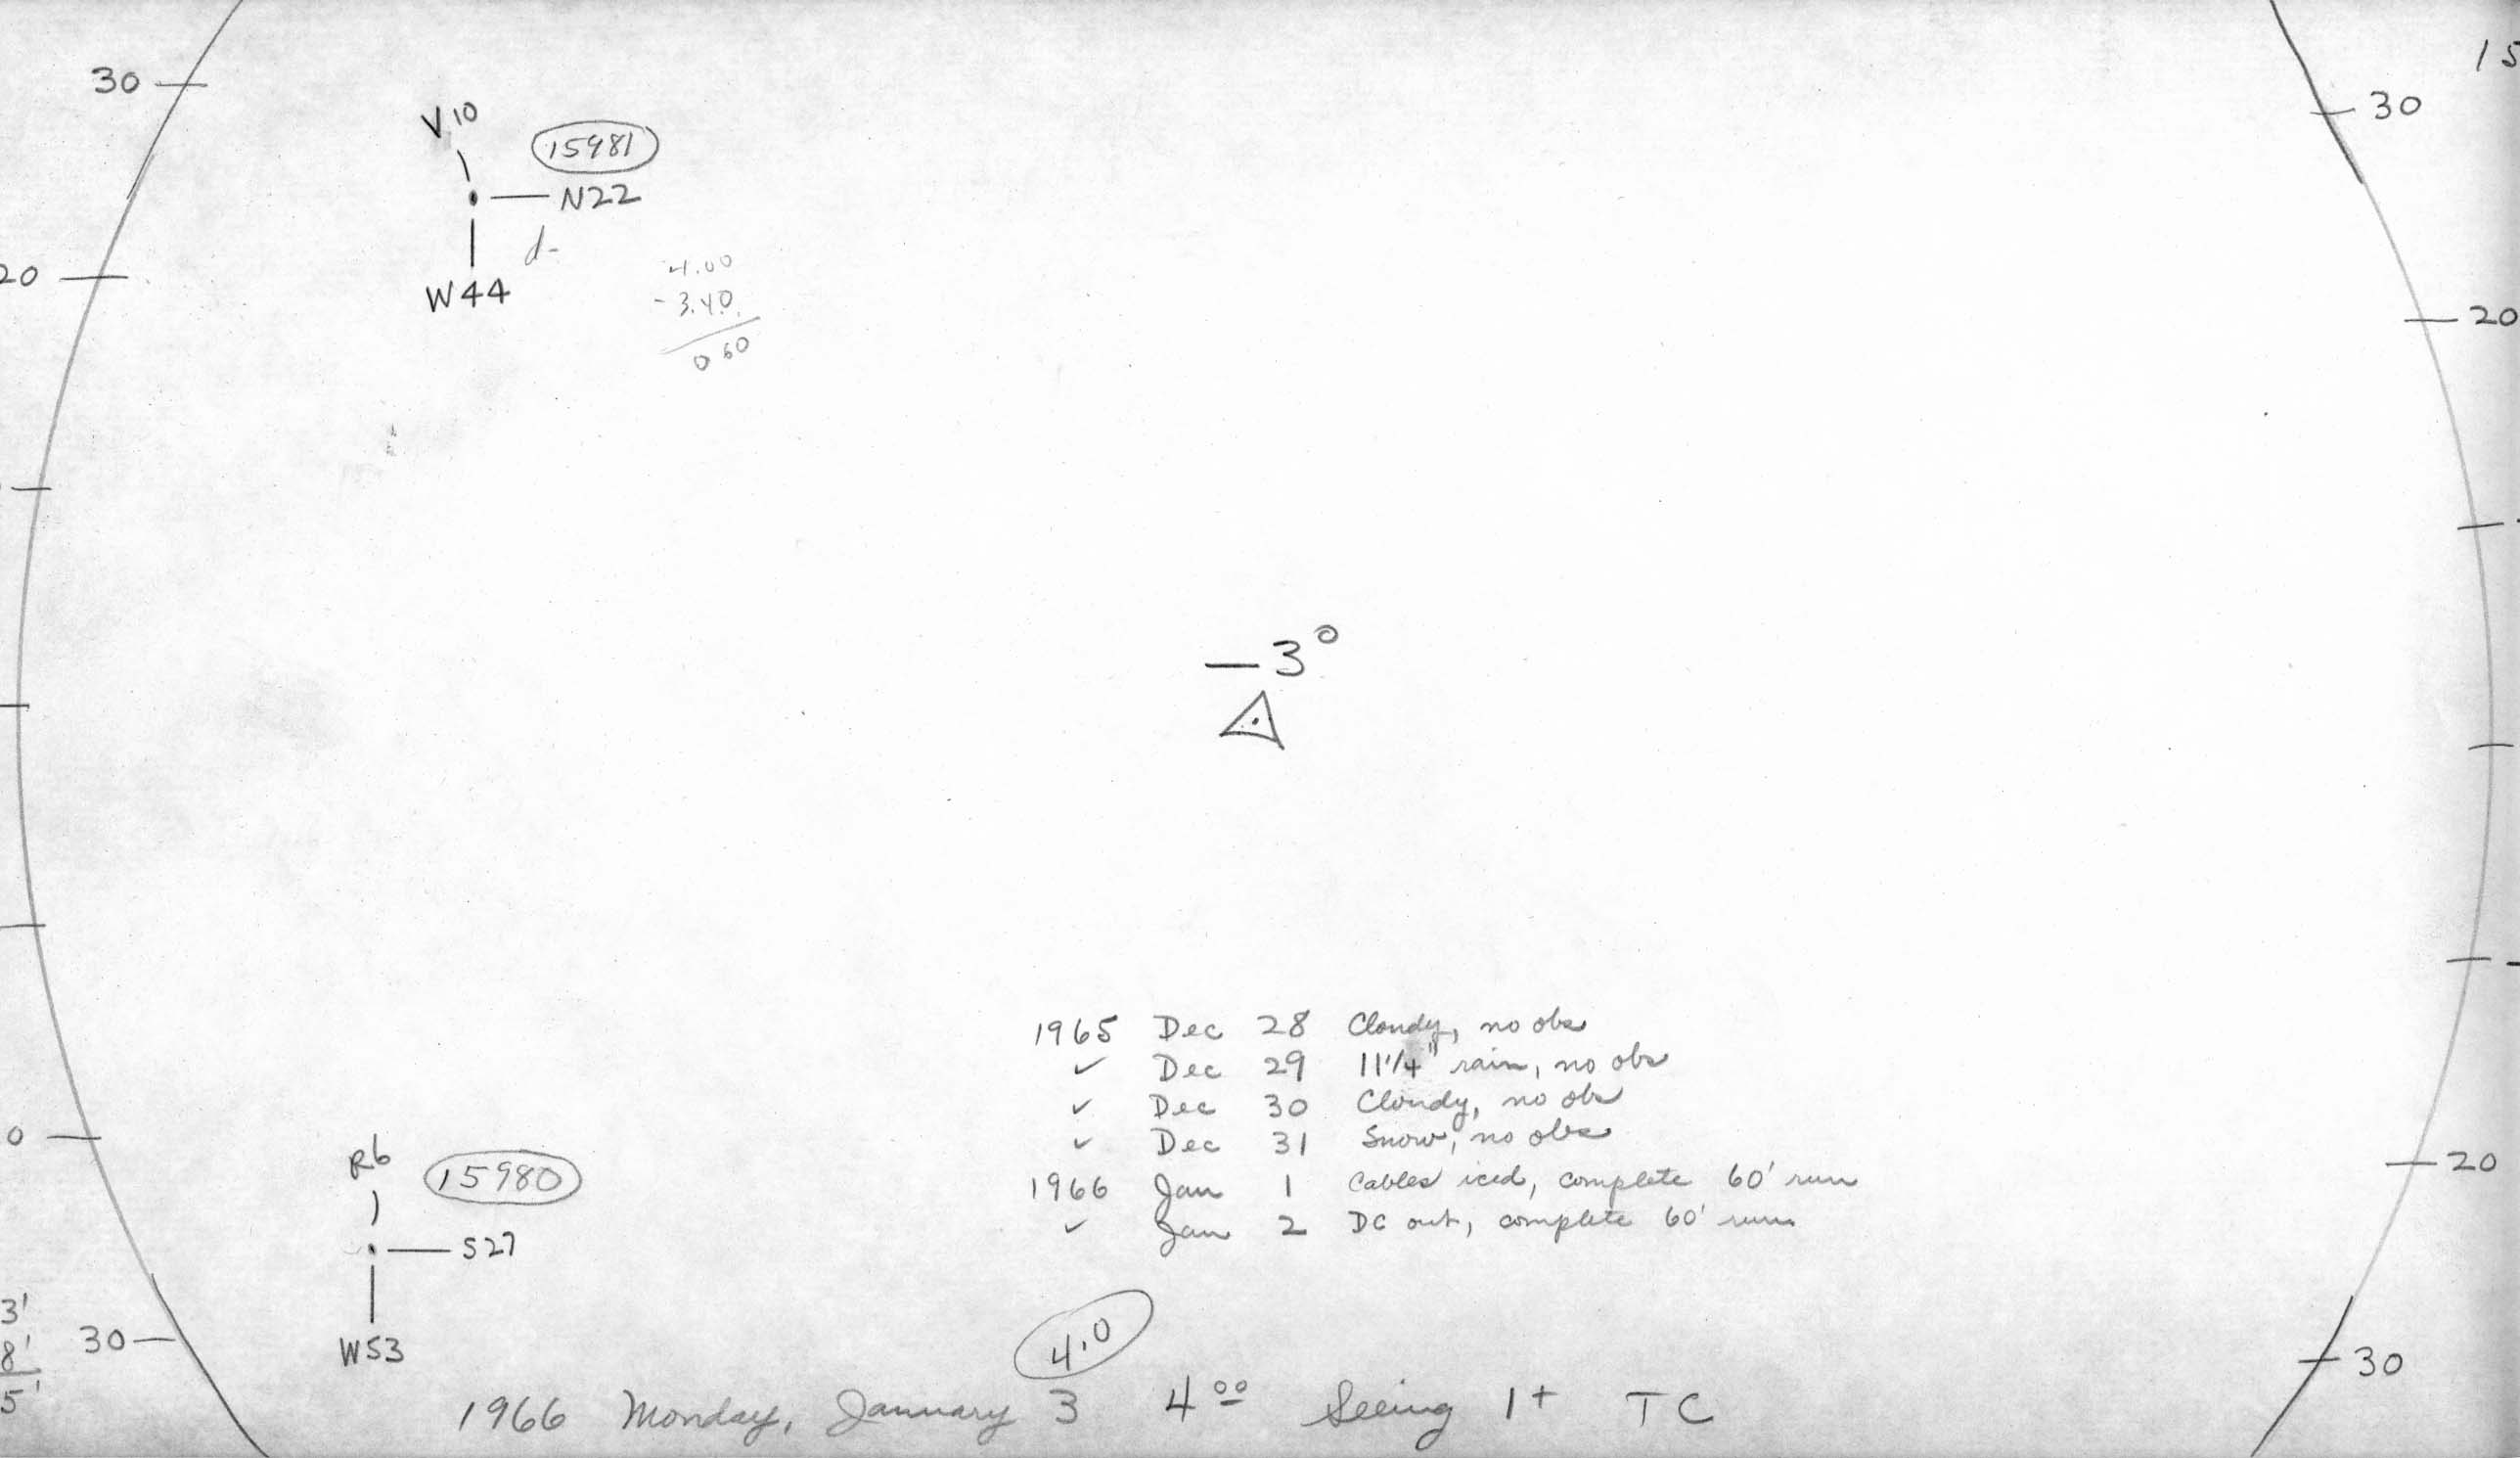 30
V10
15981
N22
d-
W44
20
4.00
-3.40
0 60
15
30
20
-3°
1965 Dec 28 Cloudy, no obs
✓ Dec 29 11 1/4" rain, no obs
✓ Dec 30 Cloudy, no obs
✓ Dec 31 Snow, no obs
1966 Jan 1 Cables iced, complete 60' run
✓ Jan 2 DC out, complete 60' run
0
R6
15980
S27
W53
20
3'
8'
5'
30
30
4.0
1966 Monday, January 3 4 00 Seeing 1+ TC